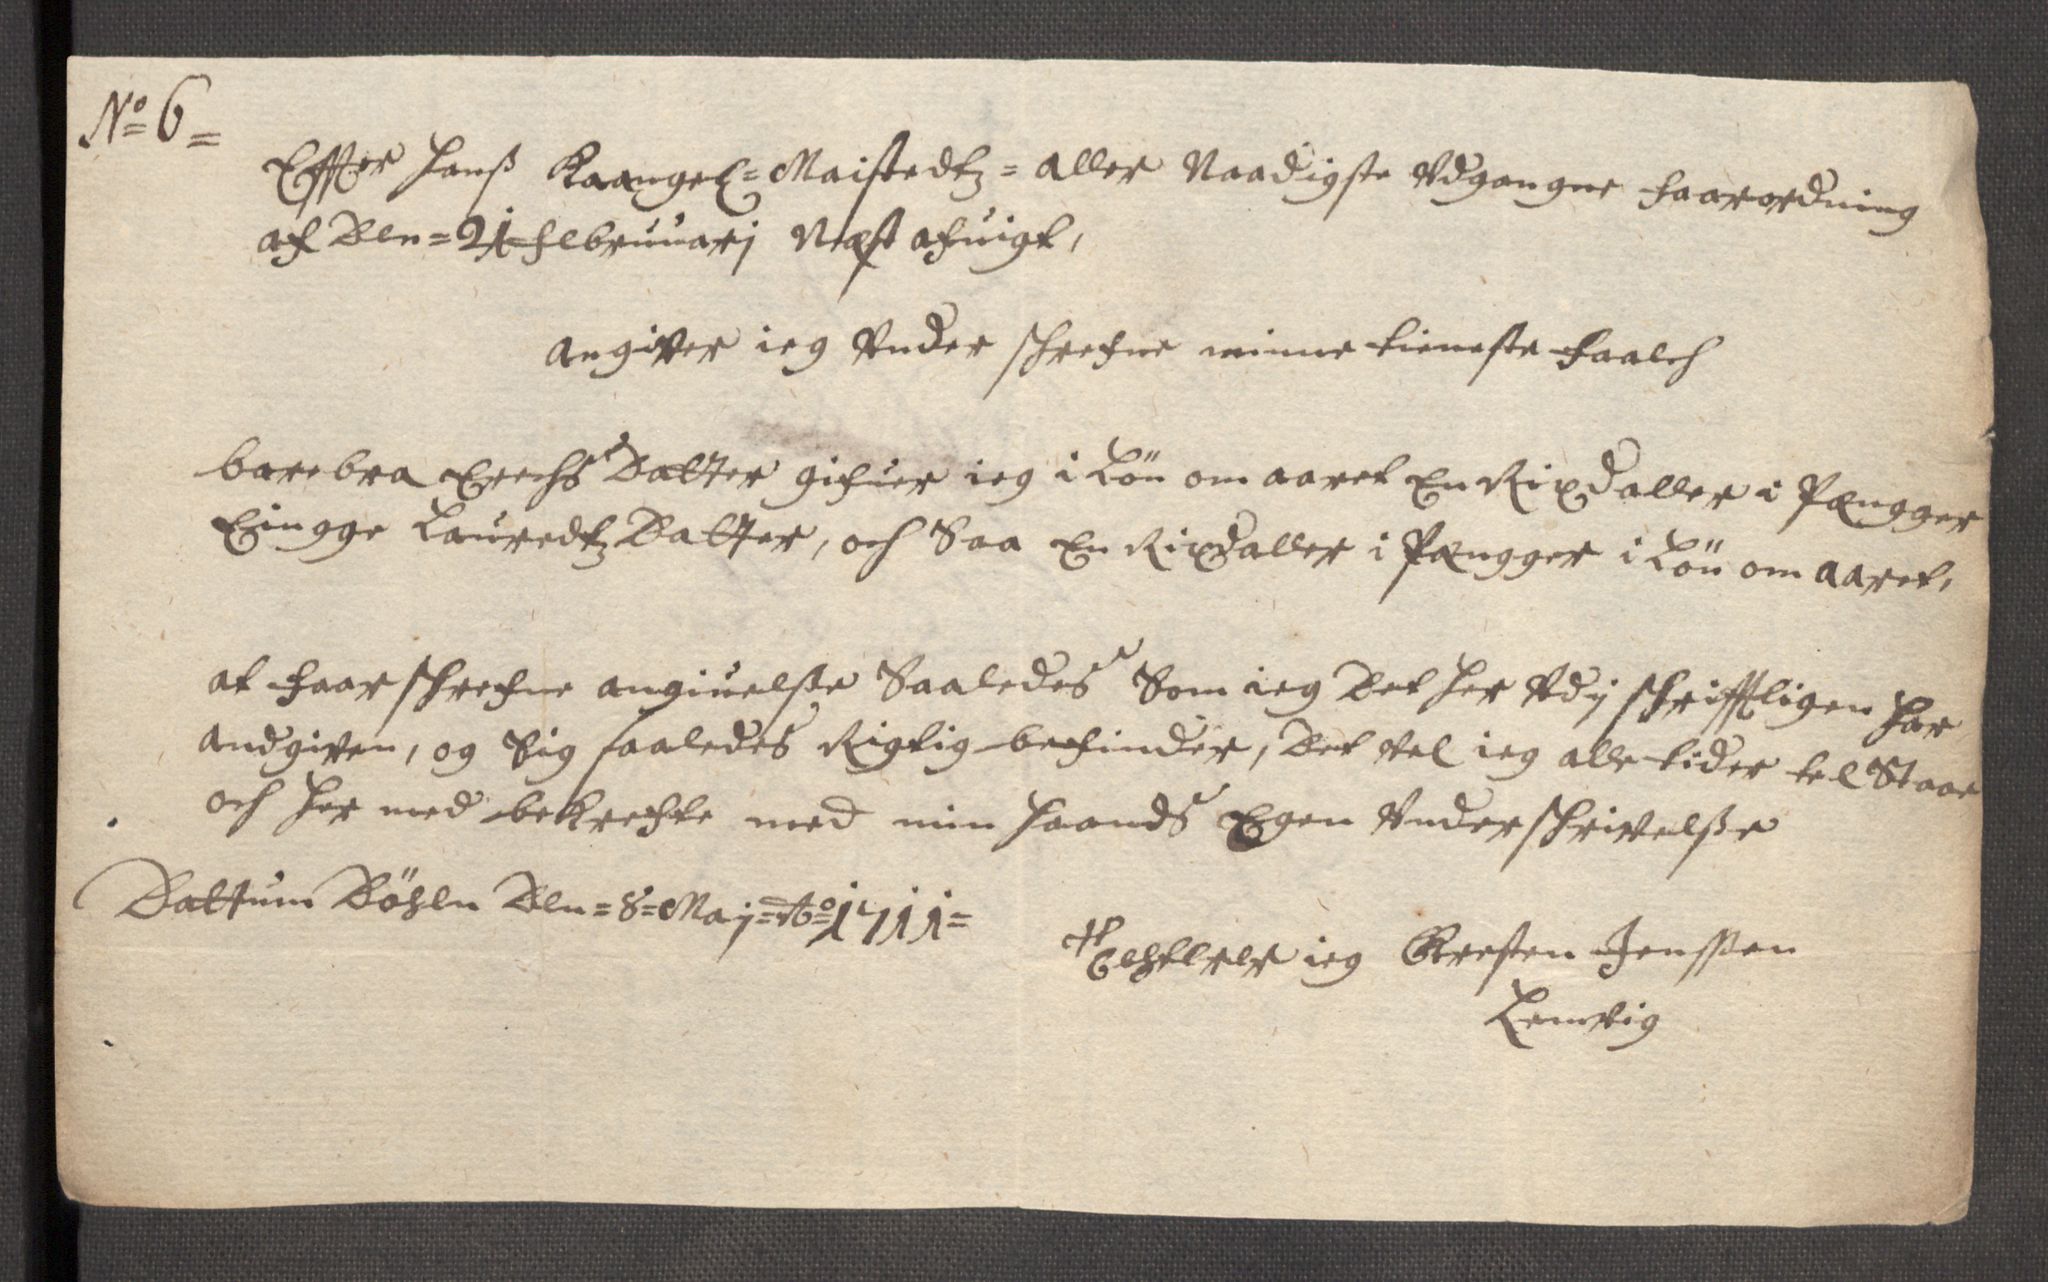 No 6 =
Effter Hanß Kaangel = Maistedtz = aller Naadigste Vdgangne faarordning
af Den = 21 Februuarj Nest afuigt,
angiver ieg Vnder schrefne minne tieneste faalch
barebra Erechs Datter gifuer ieg i Lön om aaret En Rixdaller i Pengger
Eingge Lauredtz Datter, och Saa En Rixdaller i Pengger i Lön om aaret,
at faar schrefne angiuelsse Saaledes Som ieg Det her Vdij schrifftligen har
andgiven, og Sig saaledes Rigtig befinder, Det vel ieg alle tider tel Staae
och her med bekrefte med min haands Egen Vnderschrivelsse
Dattum Döhln Den = 8 = Maij = Ao = 1711 =
ieg Kresten Jenssen
Lemvig